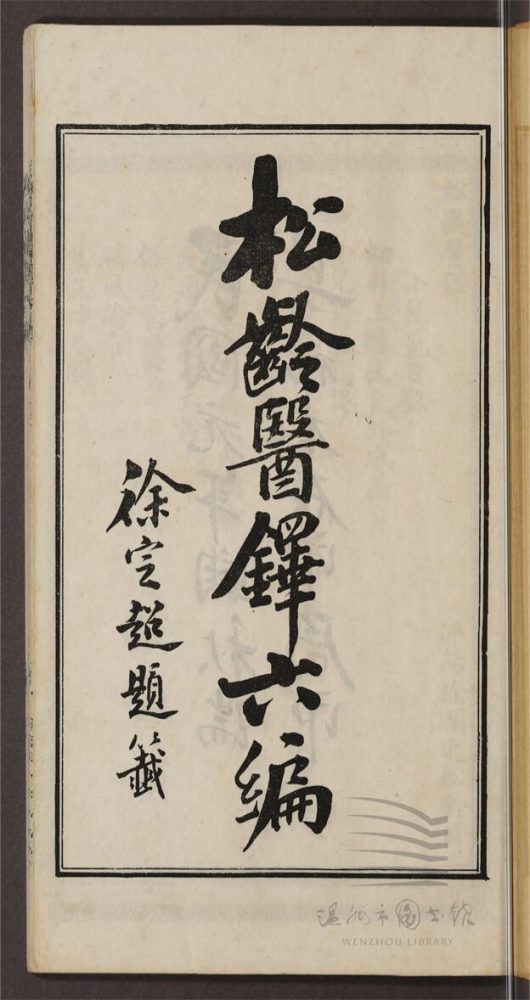 松齡醫鐸六編
徐定超題籤
温州市图书馆
WENZHOU LIBRARY